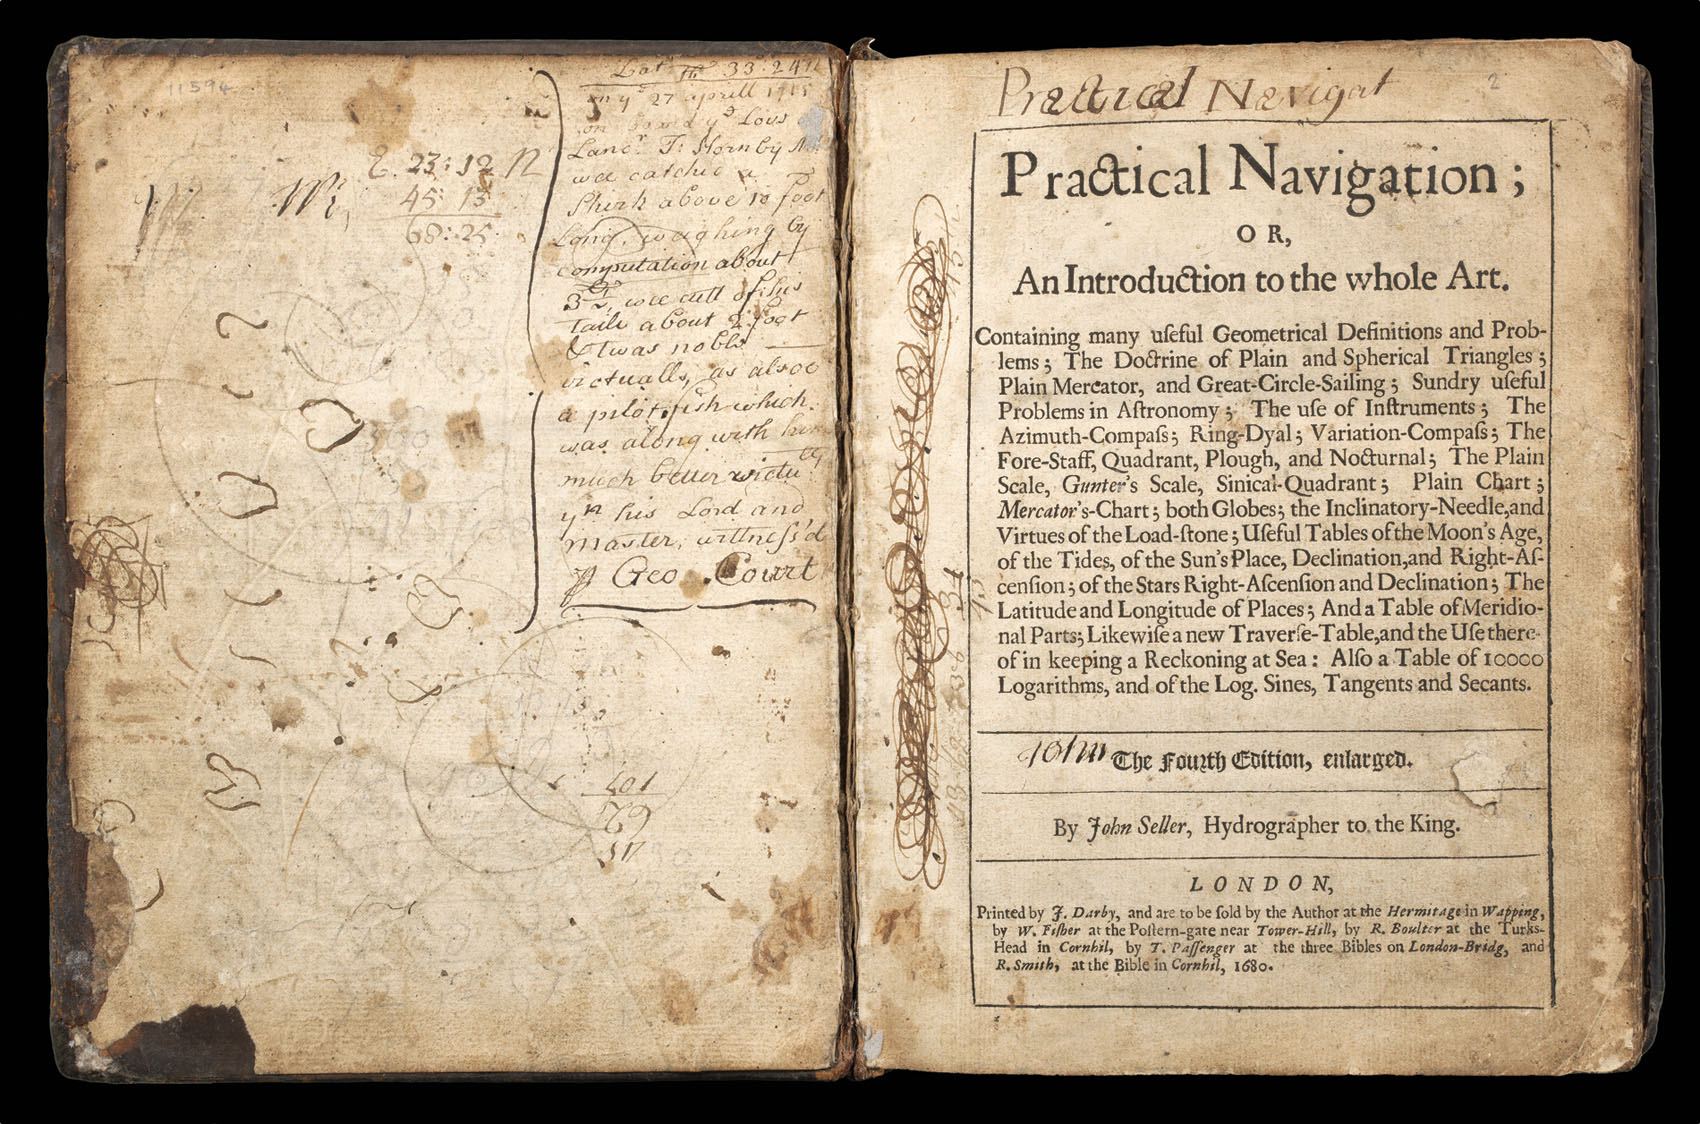 11594
Lat 33:24 N
in yᵉ 27 aprill 1715
on board yᵉ Loys
Lancʳ. T: Hornby
wee catched a
Shirk above 10 foot
Long, weighing by
computation about
3 wee cutt of his
taile about 2 foot
& twas noble
victualls, as alsoe
a pilot fish which
was along with him
much better victu
yⁿ his Lord and
master, wittneſs'd
Geo. Court
23:12 N
45:13
68:25
300
101
79
Practical Navigat
2
Practical Navigation;
OR,
An Introduction to the whole Art.
Containing many uſeful Geometrical Definitions and Prob-
lems; The Doctrine of Plain and Spherical Triangles;
Plain Mercator, and Great-Circle-Sailing; Sundry uſeful
Problems in Aſtronomy; The uſe of Inſtruments; The
Azimuth-Compaſs; Ring-Dyal; Variation-Compaſs; The
Fore-Staff, Quadrant, Plough, and Nocturnal; The Plain
Scale, Gunter's Scale, Sinical-Quadrant; Plain Chart;
Mercator's-Chart; both Globes; the Inclinatory-Needle,and
Virtues of the Load-ſtone; Uſeful Tables of the Moon's Age,
of the Tides, of the Sun's Place, Declination,and Right-Aſ-
cenſion; of the Stars Right-Aſcenſion and Declination; The
Latitude and Longitude of Places; And a Table of Meridio-
nal Parts; Likewiſe a new Traverſe-Table,and the Uſe there-
of in keeping a Reckoning at Sea: Alſo a Table of 10000
Logarithms, and of the Log. Sines, Tangents and Secants.
John The Fourth Edition, enlarged.
By John Seller, Hydrographer to the King.
LONDON,
Printed by J. Darby, and are to be ſold by the Author at the Hermitage in Wapping,
by W. Fiſher at the Poſtern-gate near Tower-Hill, by R. Boulter at the Turks-
Head in Cornhil, by T. Paſſenger at the three Bibles on London-Bridg, and
R. Smith, at the Bible in Cornhil, 1680.